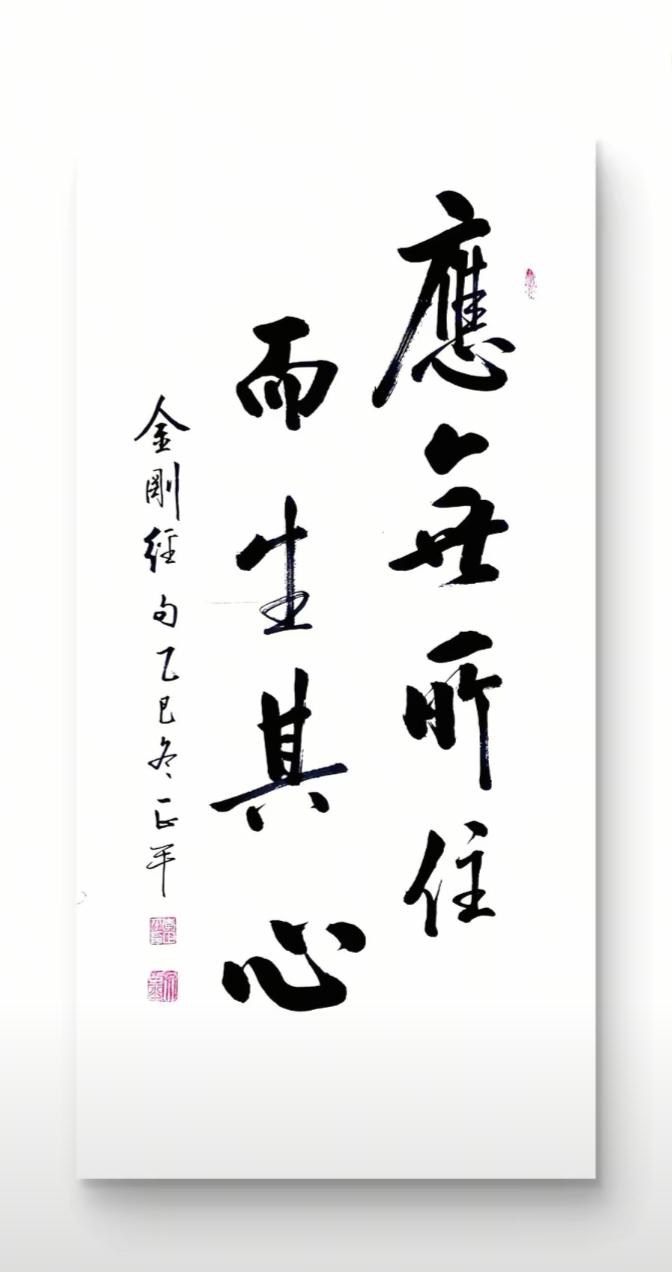 應無所住
而生其心
金剛經句乙巳冬正平